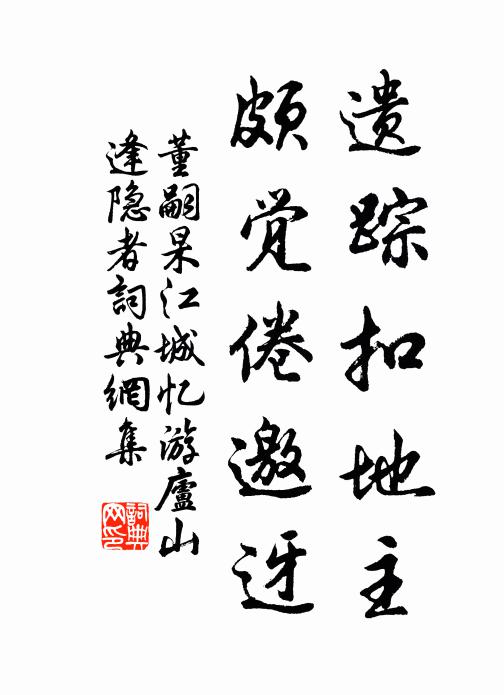 遗踪扣地主
颇觉倦邀迓
董嗣杲江城忆游廬山
逢隐者詞典網集
詞典网印